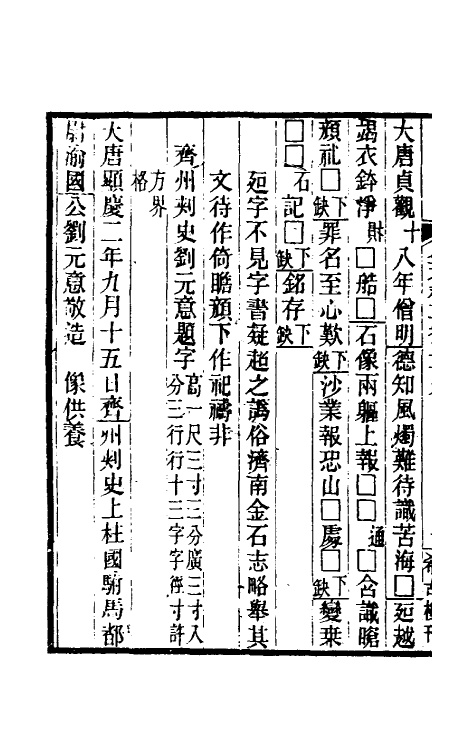 大唐貞觀十八年僧明德知風燭難待識苦海□𨑭越
竭衣鉢淨財□船□石像兩軀上報□□□通□含識暗
頹祉□下缺罪名至心歎下缺沙業報恐山□處□下缺變栗
□□石記□下缺銘存下缺
𨑭字不見字書疑超之譌俗濟南金石志略舉其
文待作倚瞻頹下作祀禱非
齊州刾史劉元意題字高一尺三寸三分廣三寸八
分三行行十三字字徑寸許
方界
格
大唐顯慶二年九月十五日齊州刾史上柱國駙馬都
尉渝國公劉元意敬造 像供養